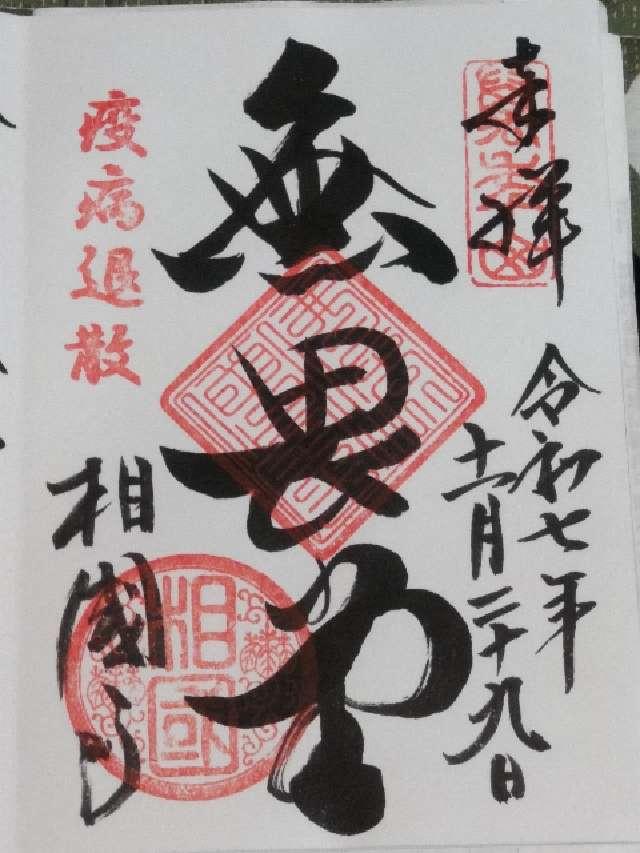 奉拝
令和七年
十一月二十九日
無畏堂
疫病退散
相國寺
相國